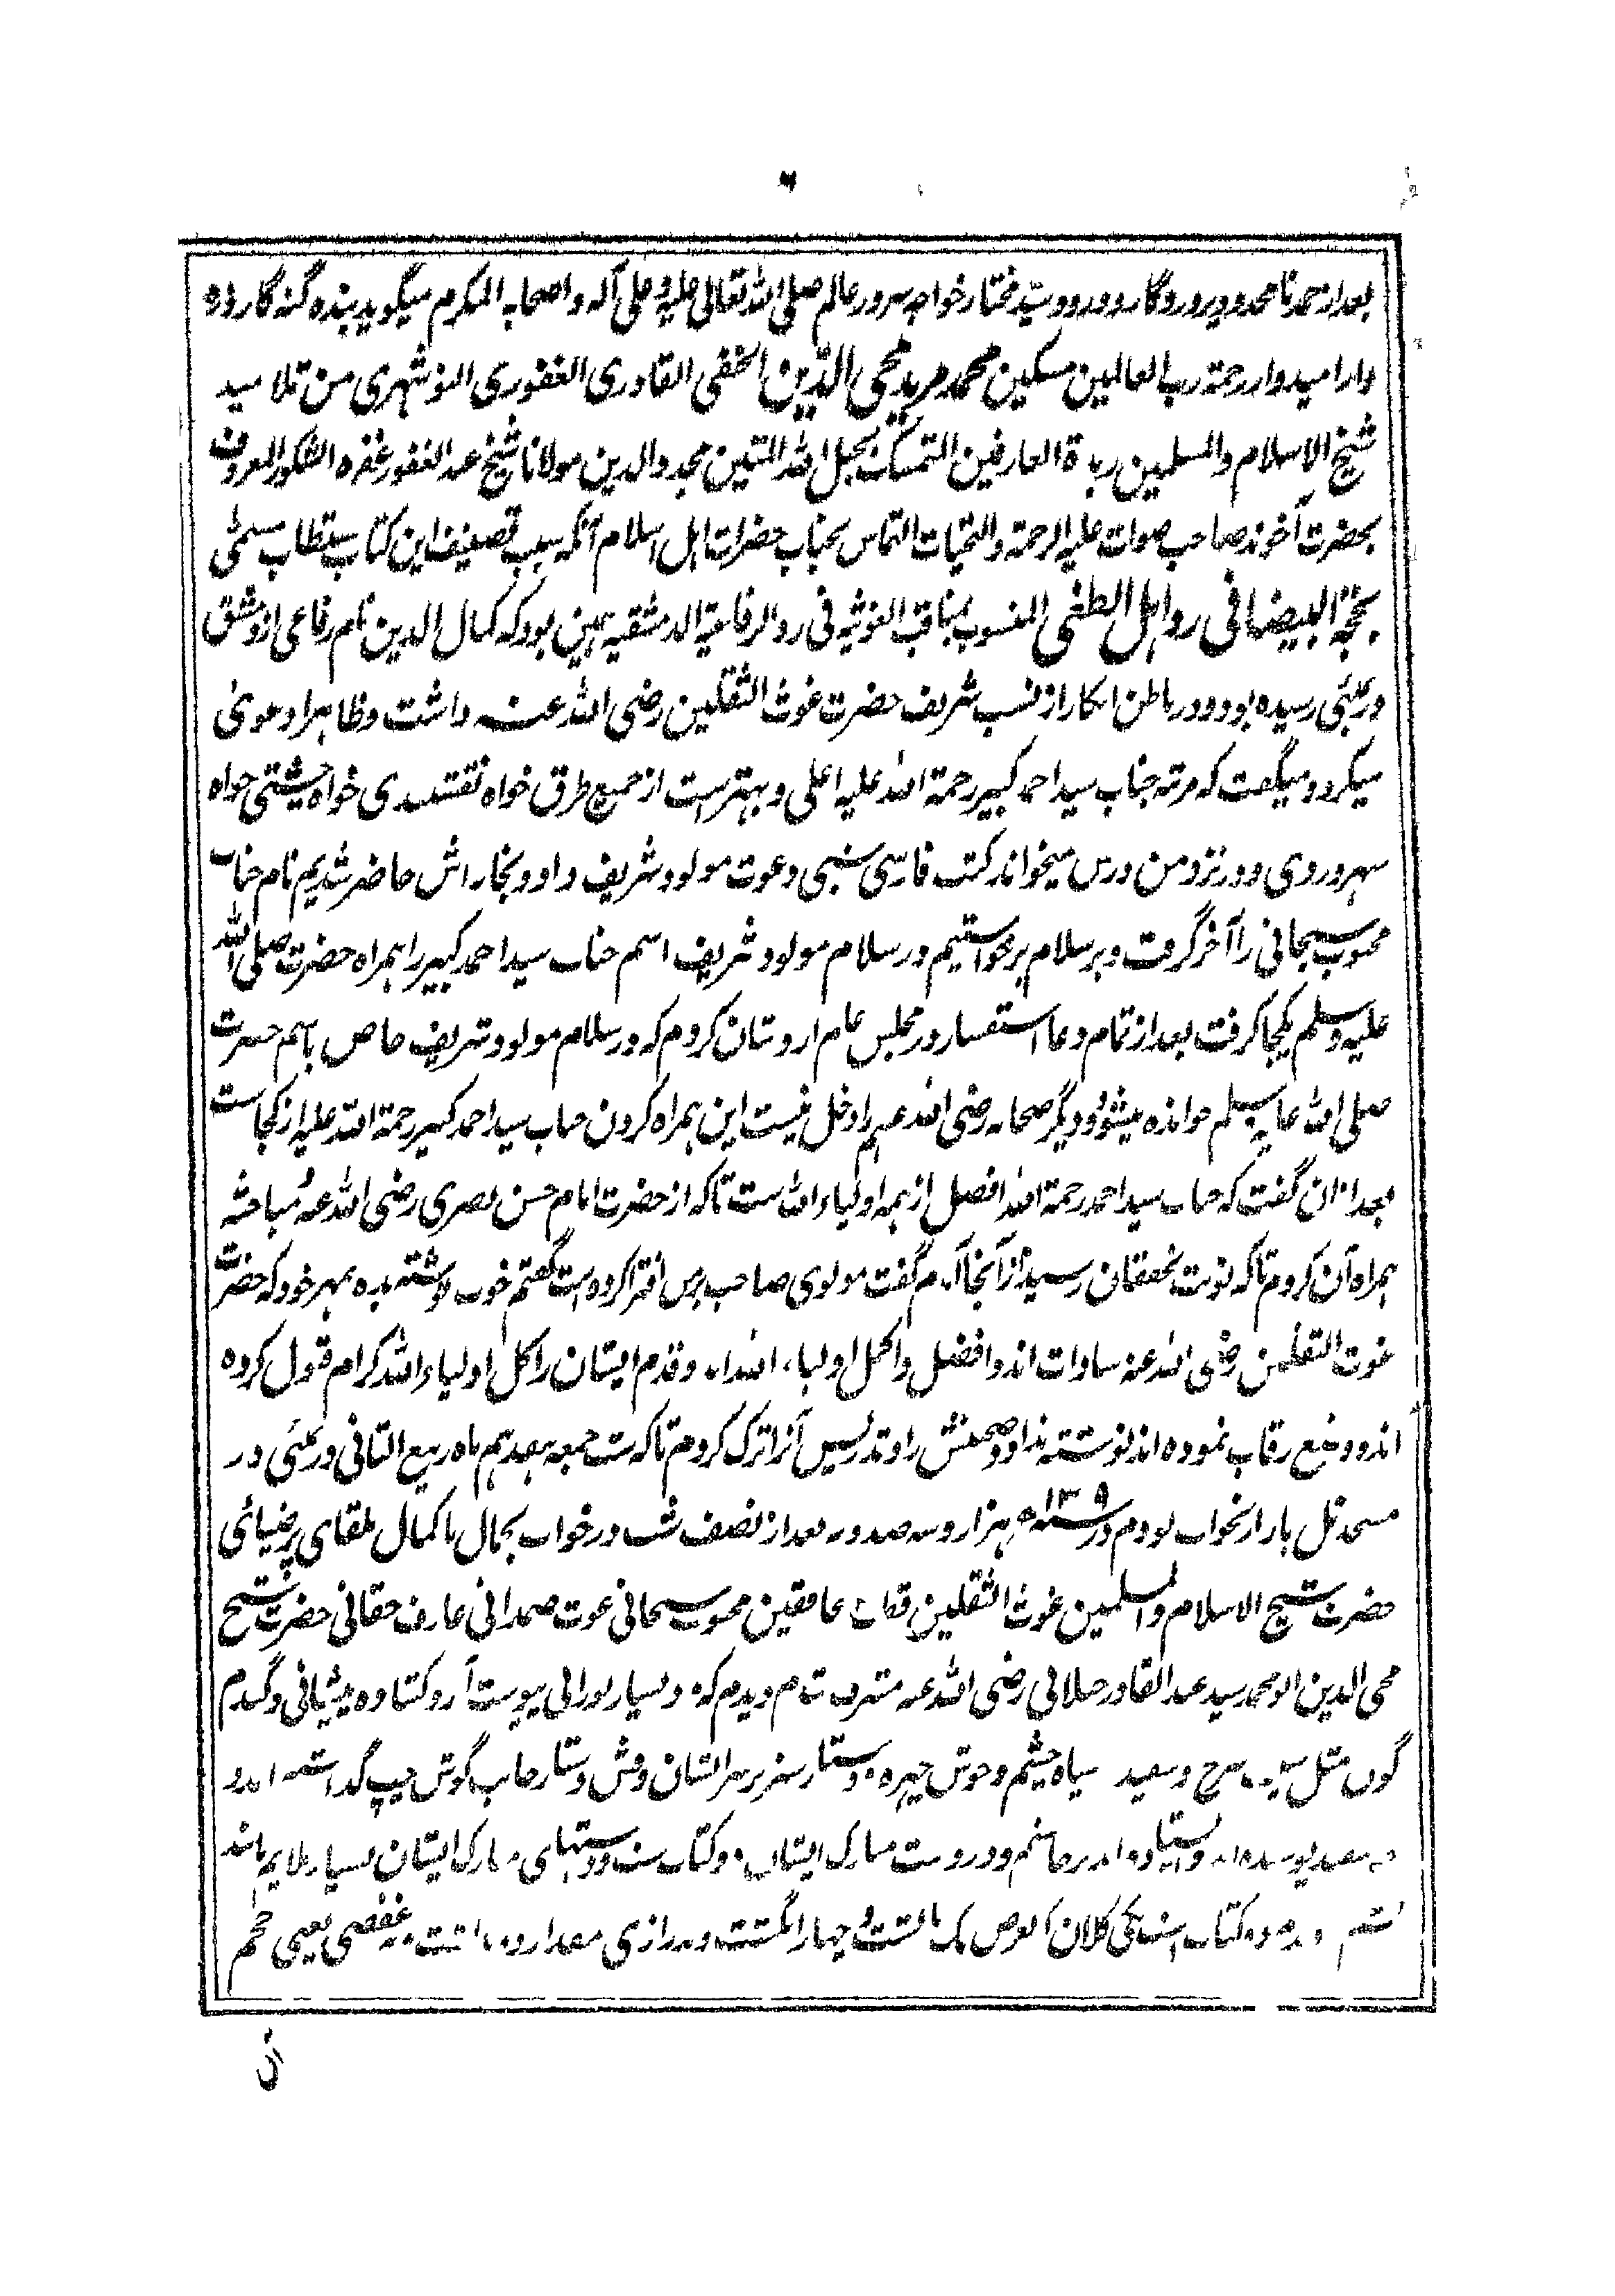 بعد از حمد نامحدود پروردگار و درود سید مختار خواجه سرور عالم صلی الله تعالی علیه و علی آله و اصحابه المکرم میگوید بنده گنه گار ذره
وار امیدوار رحمة رب العالمین مسکین محمد مرید محی الدین الحنفی القادری الغفوری النوشهری من تلامید
شیخ الاسلام والمسلمین زبدة العارفین المتمسک بحبل الله المتین مجدد الدین مولانا شیخ عبد الغفور غفره الشکور المعروف
بحضرت آخوند صاحب صوات علیه الرحمة والتحیات التماس بجناب حضرات اهل اسلام آنکه سبب تصنیف این کتاب مستطاب مسمی
بحجة البیضا فی رد اهل الطغی المنسوب بمناقب الغوثیه فی رد الرفاعیة الدمشقیه همین بود که کمال الدین نام رفاعی از دمشق
در بمبئی رسیده بود و در باطن انکار از نسب شریف حضرت غوث الثقلین رضی الله عنه داشت و ظاهرا دعوی
میکرد و میگفت که مرتبه جناب سید احمد کبیر رحمة الله علیه اعلی و بهتر است از جمیع طرق خواه نقشبندی خواه چشتی خواه
سهروردی و در نزد من درس میخواند کتب فارسی سببی دعوت مولود شریف داد و بخانه اش حاضر شدیم نام جناب
محبوب سبحانی را آخر گرفت و بر سلام برخواستیم در سلام مولود شریف اسم جناب سید احمد کبیر را همراه حضرت صلی الله
علیه وسلم یکجا گرفت بعد از تمام دعا استفسار در مجلس عام از وشان کردم که در سلام مولود شریف خاص باسم حضرت
صلی الله علیه وسلم خوانده میشود و دیگر صحابه رضی الله عنهم را دخل نیست این همراه کردن جناب سید احمد کبیر رحمة الله علیه از کجاست
بعد ازان گفت که جناب سید احمد رحمة الله افضل از همه اولیاء الله است تا که از حضرت امام حسن بصری رضی الله عنه مباحثه
همراه آن کردم تا که نوبت بخفقان رسید از آنجا آمدم گفت مولوی صاحب برمن افترا کرده است گفتم خوب نوشته بده بمهر خود که حضرت
غوث الثقلین رضی الله عنه سادات اند و افضل و اکمل اولیاء الله اند و قدم ایشان را کل اولیاء الله کرام قبول کرده
اند و وضع رقاب نموده اند نوشته نداد و صحبتش را و تدریس آنرا ترک کردم تا که شب جمعه هیجدهم ماه ربیع الثانی در بمبئی در
مسجد تل بازار بخواب بودم در سنه ۱۳۰۹ه هزار و سه صد و نه بعد از نصف شب در خواب بجمال با کمال بلقای پر ضیائی
حضرت شیخ الاسلام والمسلمین غوث الثقلین قطب خافقین محبوب سبحانی غوث صمدانی عارف حقانی حضرت شیخ
محی الدین ابو محمد سید عبد القادر جیلانی رضی الله عنه مشرف شدم و دیدم که بسیار نورانی پیوست ابرو کشاده پیشانی و گندم
گون مثل سرخ و سفید سیاه چشم و خوش چهره و دستار سبز بر سر ایشان و فش دستار جانب گوش چپ گذاشته اند و
سفید پوشیده اند و ایستاده اند برخاستم و در دست مبارک ایشان دو کتاب است و دستهای مبارک ایشان بسیار ملایم
و کتاب است یکی کلان بعرض یک بالشت و چهار انگشت و درازی مقدار دو بالشت یعنی حجم
ن